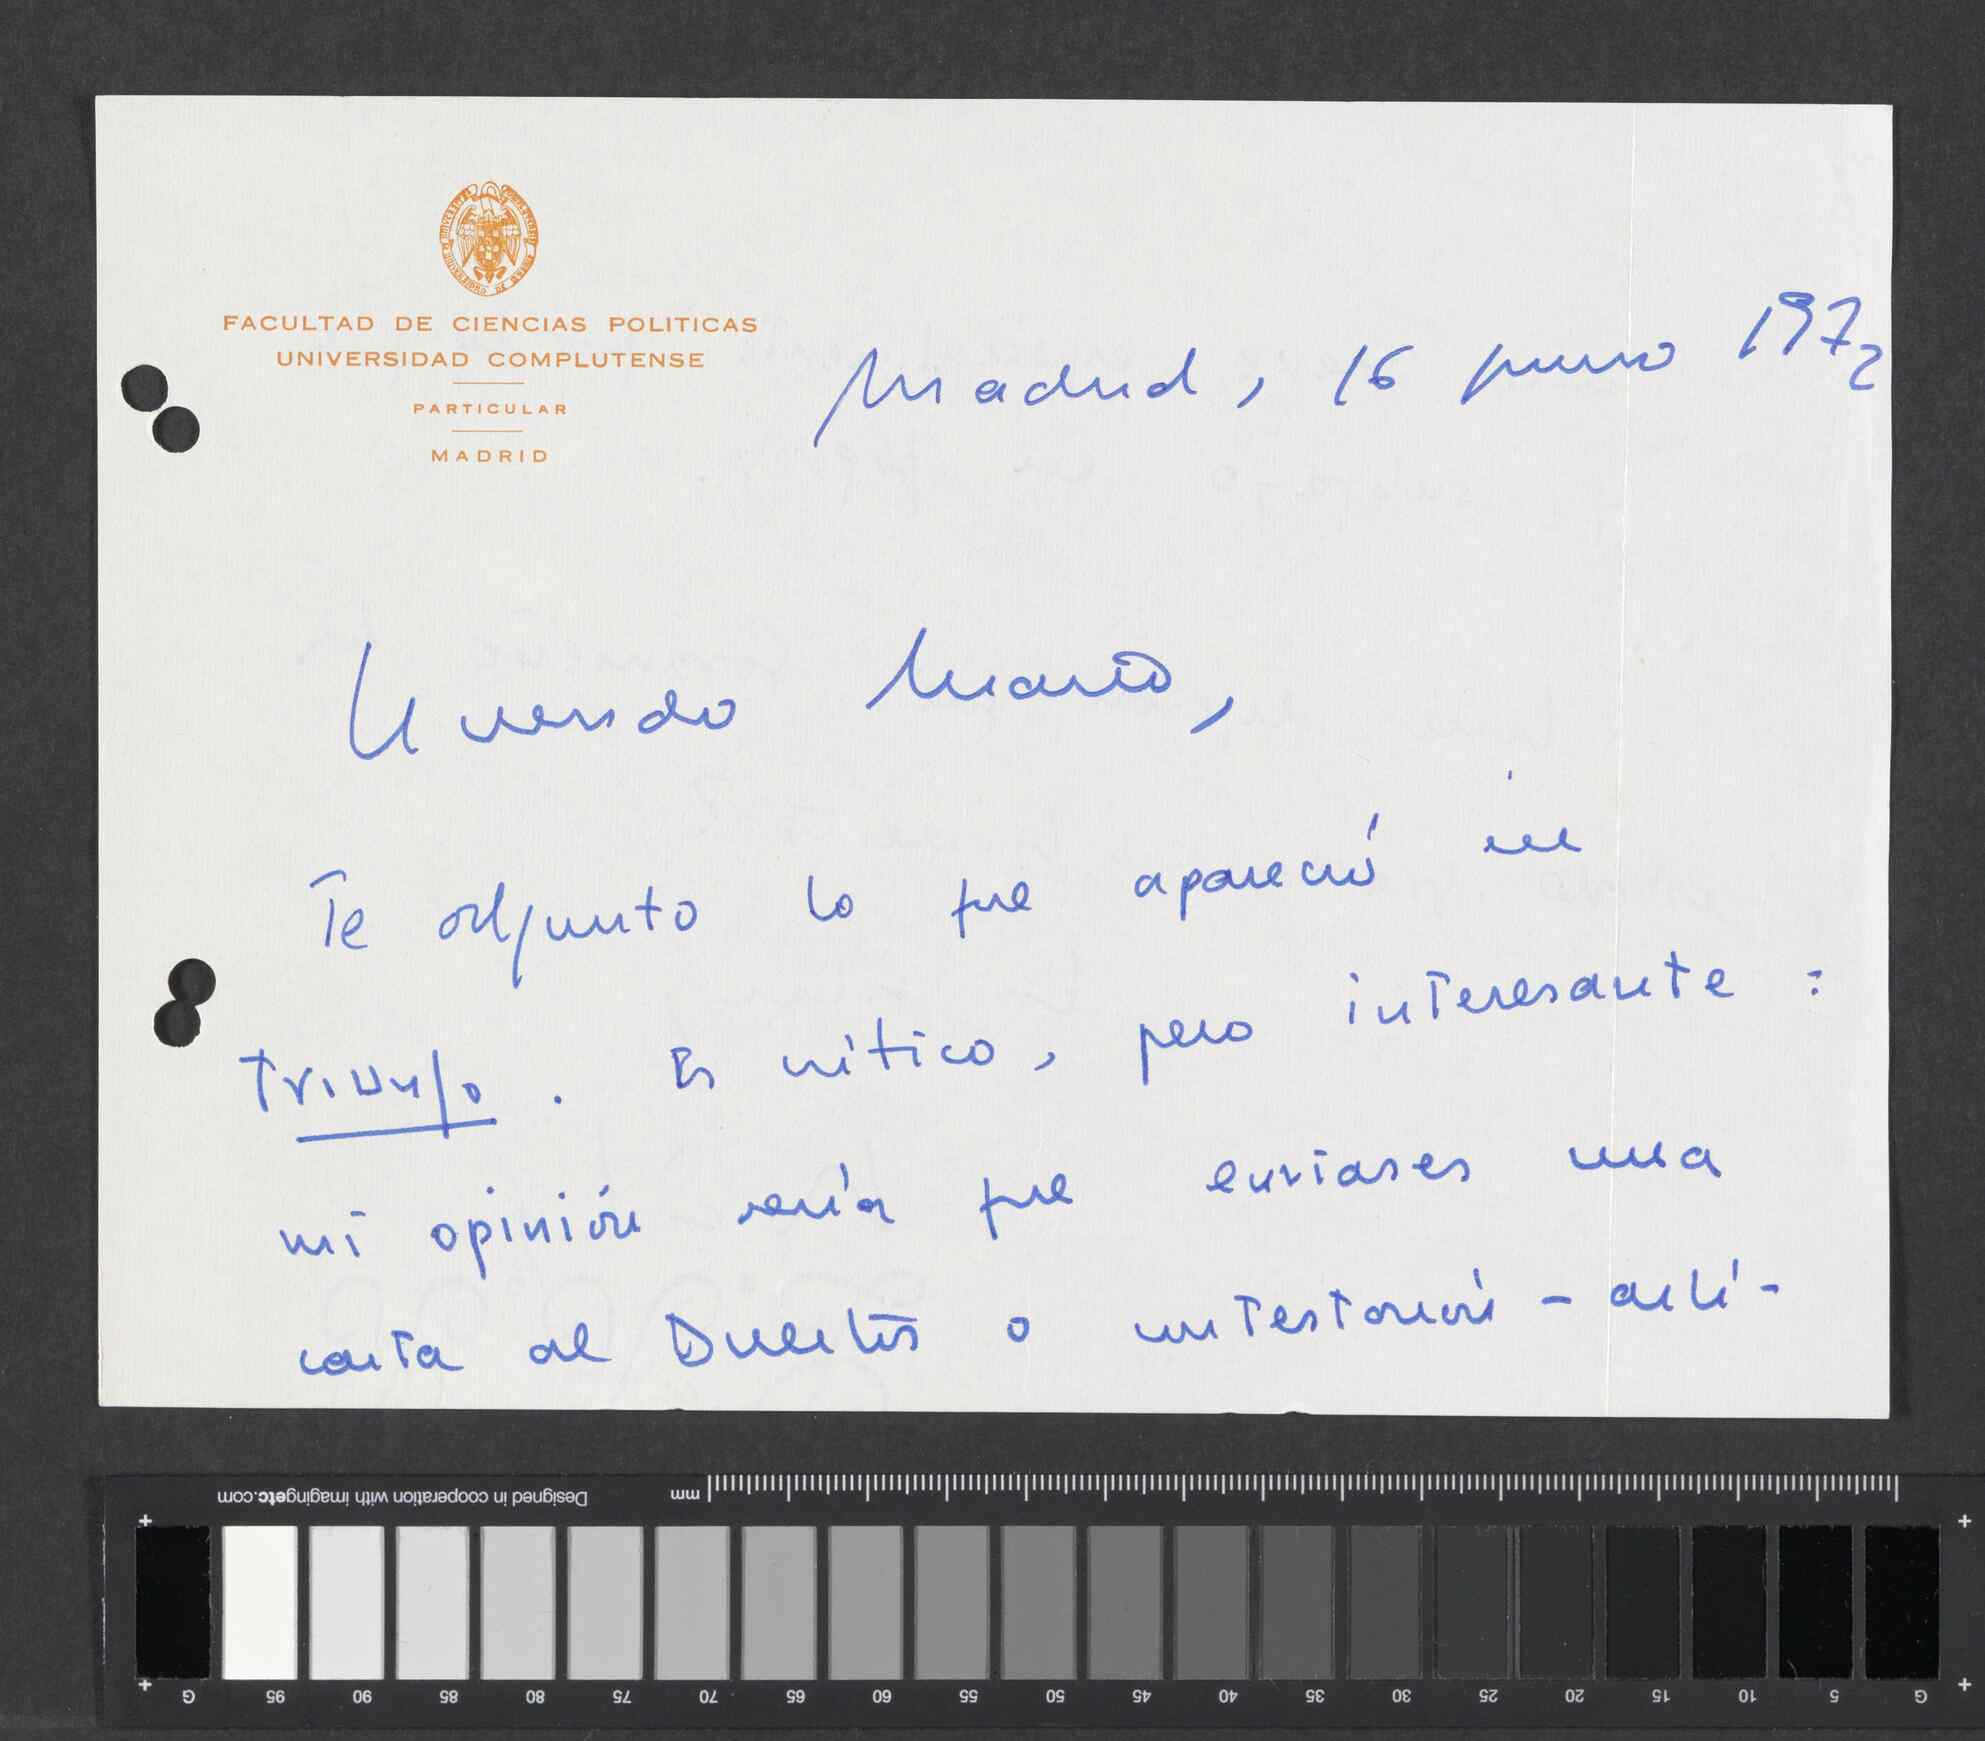 FACULTAD DE CIENCIAS POLITICAS
UNIVERSIDAD COMPLUTENSE
PARTICULAR
MADRID
Madrid, 16 junio 1972
Querido Mario,
Te adjunto lo que apareció en
Triunfo. Es crítico, pero interesante:
mi opinión sería que enviases una
carta al Director o contestación - artí-
Designed in cooperation with imagingetc.com
mm
G 95 90 85 80 75 70 65 60 55 50 45 40 35 30 25 20 15 10 5 G